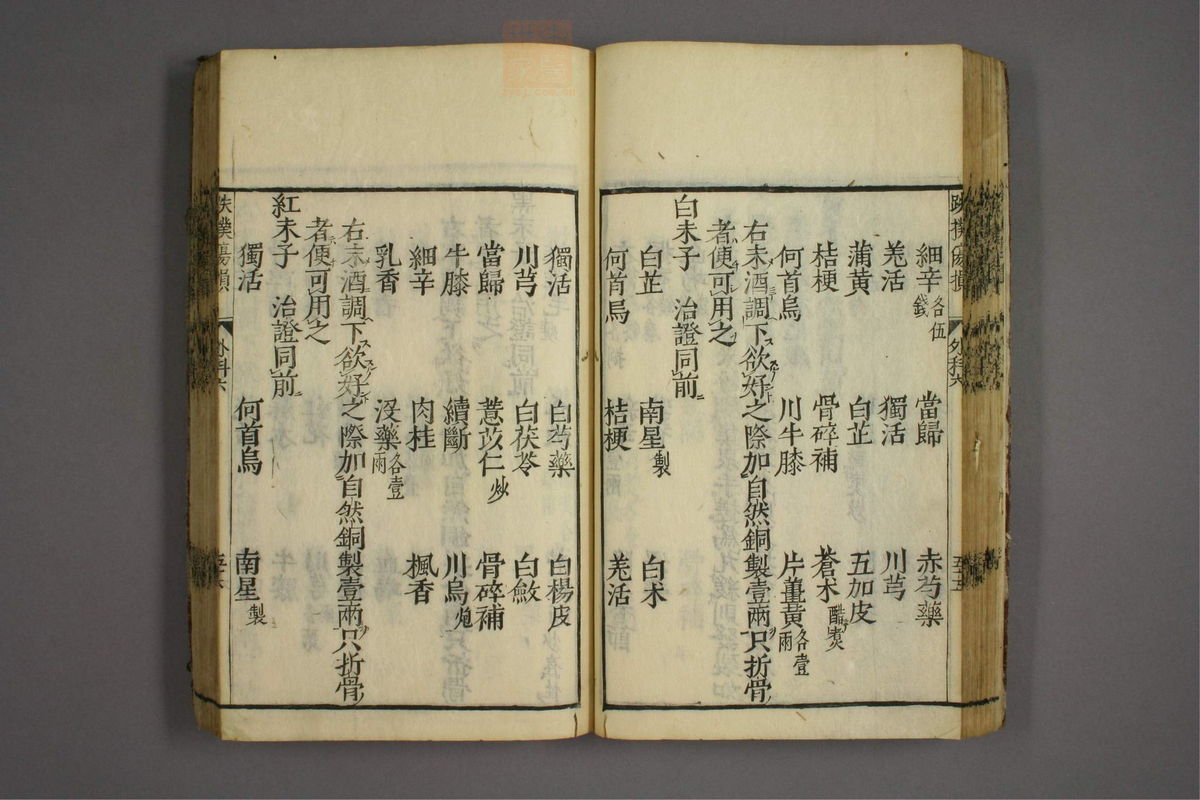 細辛各伍錢 當歸 赤芍藥
羗活 獨活 川芎
蒲黃 白芷 五加皮
桔梗 骨碎補 蒼朮醋煑
何首烏 川牛膝 片薑黃各壹兩
右末酒調下欲好之際加自然銅製壹兩只折骨
者便可用之
白末子 治證同前
白芷 南星製 白朮
何首烏 桔梗 羗活
獨活 白芍藥 白楊皮
川芎 白茯苓 白斂
當歸 薏苡仁炒 骨碎補
牛膝 續斷 川烏炮
細辛 肉桂 楓香
乳香 沒藥各壹兩
右末酒調下欲好之際加自然銅製壹兩只折骨
者便可用之
紅末子 治證同前
獨活 何首烏 南星製
跌撲傷損 外科六